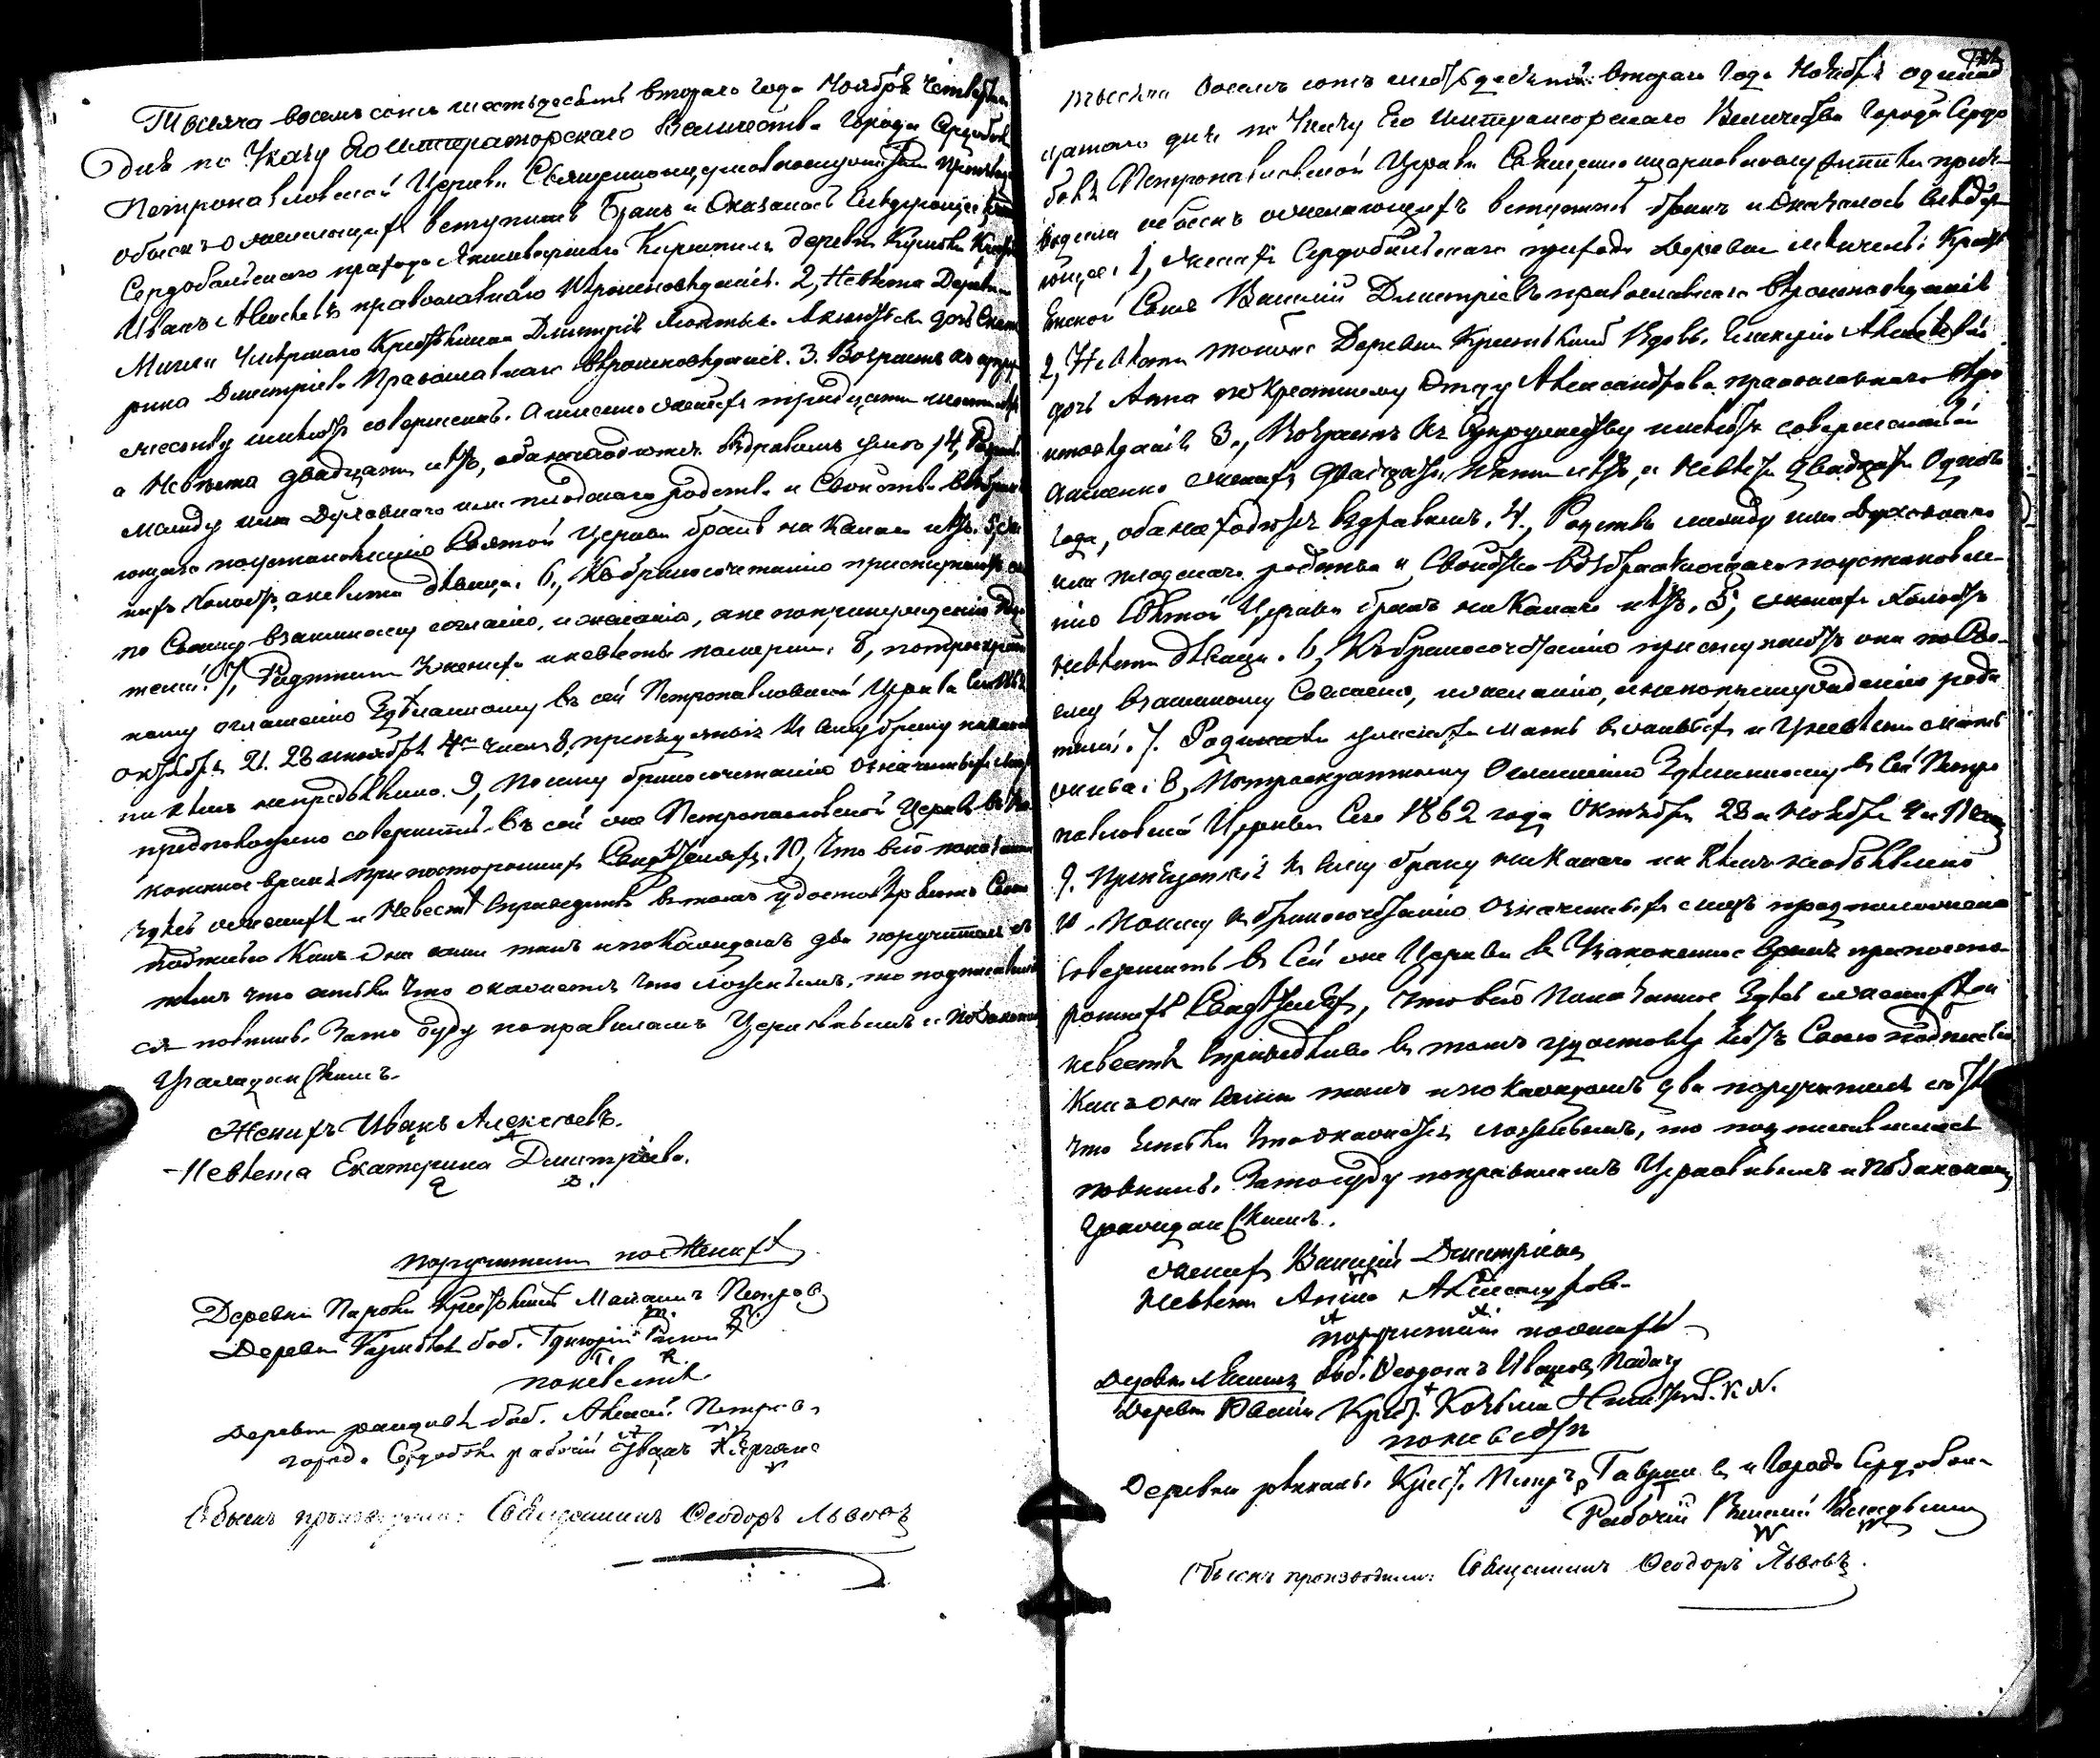 Тысяча восемь сотъ шестьдесятъ втораго года Ноября четвертаго
дня по Указу Его Императорскаго Величества Города Сердоболя
Петропавловской Церкви Священноцерковнослужители произвели
обыскъ о желающихъ вступить въ бракъ и оказалось следующее
Сердобольскаго прихода деревни Крест
Иванъ Алексѣевъ православнаго вѣроисповѣданія. 2, Невѣста Деревни
Крестьянина Дмитрія дочь Екате
рина Дмитріева Православнаго вѣроисповѣданія. 3. Возрастъ къ супру
жеству имѣютъ совершенный. А именно женихъ тридцати
а Невѣста двадцати лѣтъ, оба находятся въ здравомъ умѣ. 4, Родства
между ими Духовнаго или плотскаго родства и Свойства возбраня
ющаго по установленію Святой Церкви бракъ никакого нѣтъ. 5, же
нихъ холостъ, а невѣста дѣвица. 6, Къ бракосочетанію приступаютъ они
по Своему взаимному согласію, и желанію, а не по принужденію
7, Родители Жениха и невѣсты померли. 8, по троекрат
ному оглашенію Здѣланному въ сей Петропавловской Церкви
октября 21. 28 и ноября 4го числъ, препядствія къ сему браку никакого
ни кѣмъ не предъявлено. 9, По сему бракосочетаніе означенныхъ лицъ
предположено совершить въ сей же Петропавловской Церкви въ ука
конное время при постороннихъ Свидѣтеляхъ. 10, Что всё показанное
здѣсь о женихѣ и Невестѣ справедливо въ томъ удостовѣряютъ Своею
подписью Какъ Они сами такъ и по каждомъ два поручителя съ
тѣмъ что естьли что окажется что ложнымъ, то подписавшій
ся повиненъ Зато суду по правиламъ Церковнымъ и по законамъ
Гражданскимъ.
Женихъ Иванъ Алексѣевъ.
Невѣста Екатерина Дмитріева.
поручители по Женихѣ
Деревни Крестьянинъ Петровъ
Деревни боб. Григорій
по невѣстѣ
Деревни боб. Алексѣй Петровъ
города Сердоболя рабочій Иванъ
Обыскъ производилъ: Священникъ Ѳеодоръ Львовъ
тысяча восемь сотъ шестьдесятъ втораго года Ноября одинад
цатаго дня по Указу Его Императорскаго Величества Города Сердо
боля Петропавловской Церкви Священно церковнослужители произ
водили обыскъ о желающихъ вступить въ бракъ и оказалось слѣду
ющее: 1, женихъ Сердобольскаго прихода Деревни Кресть
янской Сынъ Василій Дмитріевъ православнаго вѣроисповѣданія
2, Невѣста той же Деревни Крестьянской Вдовы Алексѣевой
дочь Анна по крестному Отцу Александрова православнаго вѣро
исповѣданія 3., Возрастъ къ Супружеству имѣютъ совершенный
а именно женихъ двадцати пяти лѣтъ, а Невѣста двадцати Одного
года, оба находятся въ здравомъ. 4., Родства между ими духовнаго
или плотскаго родства и Свойства возбраняющаго по установле
нію Святой Церкви бракъ никакаго нѣтъ. 5, женихъ холостъ
невѣста дѣвица. 6, Къ бракосочетанію приступаютъ они по Сво
ему взаимному Согласію, и желанію, а не по принужденію роди
телей. 7. Родители у жениха мать въ живыхъ и у невѣсты мать
жива. 8, По троекратному Оглашенію Здѣланному въ Сей Петро
павловской Церкви Сего 1862 года Октября 28 и Ноября 4 и 11 числъ
9. Препядствія къ сему браку никакаго ни кѣмъ не объявлено
10. По сему бракосочетаніе означенныхъ лицъ предположено
совершить въ Сей же Церкви въ Узаконенное время при посто
роннихъ Свидѣтеляхъ, что всё показанное Здѣсь о женихѣ и
невестѣ справедливо въ томъ удостовѣряютъ Своею подписью
Какъ они сами такъ и по каждомъ два поручителя съ тѣмъ
что естьли что окажется ложнымъ, то подписавшіеся
повинны. Зато суду по правиламъ Церковнымъ и по законамъ
Гражданскимъ.
женихъ Василій Дмитріевъ
Невѣста Анна Александрова
поручители по женихѣ
Деревни боб. Ѳеодоръ Ивановъ
Деревни Крест. Козьма К. N.
по невѣстѣ
Деревни Крест. Петръ и города Сердоболя
Рабочій Василій
Обыскъ производилъ: Священникъ Ѳеодоръ Львовъ.